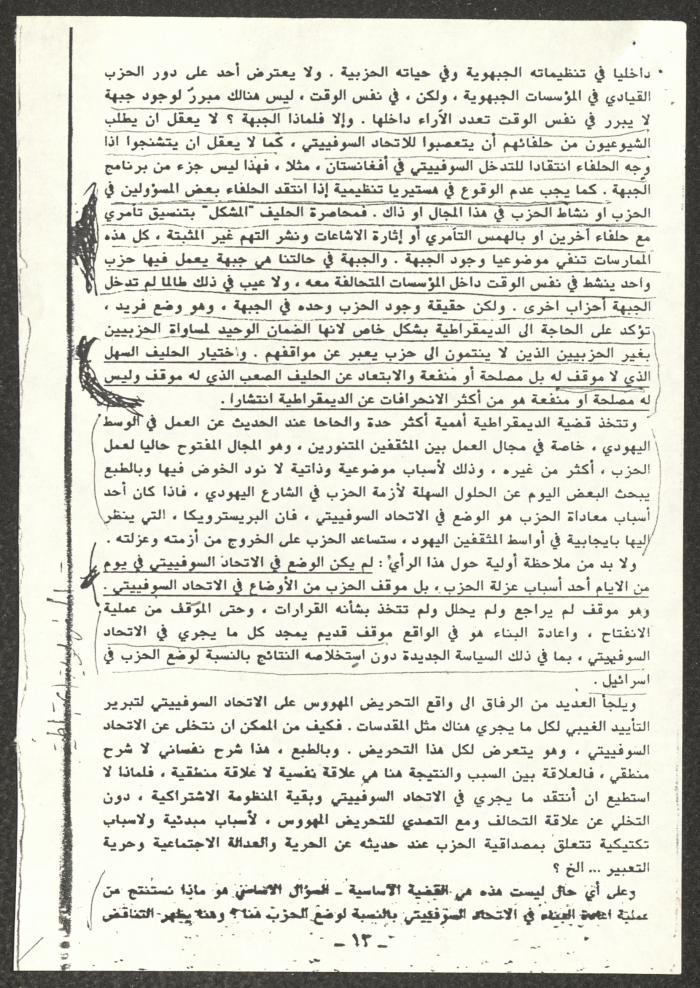 داخليا في تنظيماته الجبهوية وفي حياته الحزبية . ولا يعترض أحد على دور الحزب
القيادي في المؤسسات الجبهوية ، ولكن ، في نفس الوقت ، ليس هنالك مبرر لوجود جبهة
لا يبرر في نفس الوقت تعدد الأراء داخلها . وإلا فلماذا الجبهة ؟ لا يعقل ان يطلب
الشيوعيون من حلفائهم أن يتعصبوا للاتحاد السوفييتي ، كما لا يعقل ان يتشنجوا اذا
وجه الحلفاء انتقادا للتدخل السوفييتي في أفغانستان ، مثلا ، فهذا ليس جزء من برنامج
الجبهة . كما يجب عدم الوقوع في هستيريا تنظيمية إذا انتقد الحلفاء بعض المسؤولين في
الحزب او نشاط الحزب في هذا المجال او ذاك . فمحاصرة الحليف "المشكل" بتنسيق تأمري
مع حلفاء أخرين او بالهمس التأمري أو إثارة الاشاعات ونشر التهم غير المثبتة ، كل هذه
الممارسات تنفي موضوعيا وجود الجبهة . والجبهة في حالتنا هي جبهة يعمل فيها حزب
واحد ينشط في نفس الوقت داخل المؤسسات المتحالفة معه ، ولا عيب في ذلك طالما لم تدخل
الجبهة أحزاب اخرى . ولكن حقيقة وجود الحزب وحده في الجبهة ، وهو وضع فريد ،
تؤكد على الحاجة الى الديمقراطية بشكل خاص لانها الضمان الوحيد لمساواة الحزبيين
بغير الحزبيين الذين لا ينتمون الى حزب يعبر عن مواقفهم . واختيار الحليف السهل
الذي لا موقف له بل مصلحة أو منفعة والابتعاد عن الحليف الصعب الذي له موقف وليس
له مصلحة او منفعة هو من أكثر الانحرافات عن الديمقراطية انتشارا .
وتتخذ قضية الديمقراطية أهمية أكثر حدة والحاحا عند الحديث عن العمل في الوسط
اليهودي ، خاصة في مجال العمل بين المثقفين المتنورين ، وهو المجال المفتوح حاليا لعمل
الحزب ، أكثر من غيره ، وذلك لأسباب موضوعية وذاتية لا نود الخوض فيها وبالطبع
يبحث البعض اليوم عن الحلول السهلة لأزمة الحزب في الشارع اليهودي ، فاذا كان أحد
أسباب معاداة الحزب هو الوضع في الاتحاد السوفييتي ، فان البريسترويكا ، التي ينظر
إليها بايجابية في أواسط المثقفين اليهود ، ستساعد الحزب على الخروج من أزمته وعزلته .
ولا بد من ملاحظة أولية حول هذا الرأي : لم يكن الوضع في الاتحاد السوفييتي في يوم
من الايام أحد أسباب عزلة الحزب ، بل موقف الحزب من الأوضاع في الاتحاد السوفييتي .
وهو موقف لم يراجع ولم يحلل ولم تتخذ بشأنه القرارات ، وحتى الموقف من عملية
الانفتاح ، واعادة البناء هو في الواقع موقف قديم يمجد كل ما يجري في الاتحاد
السوفييتي ، بما في ذلك السياسة الجديدة دون استخلاصه النتائج بالنسبة لوضع الحزب في
اسرائيل .
ويلجأ العديد من الرفاق الى واقع التحريض المهووس على الاتحاد السوفييتي لتبرير
التأييد الغيبي لكل ما يجري هناك مثل المقدسات . فكيف من الممكن ان نتخلى عن الاتحاد
السوفييتي ، وهو يتعرض لكل هذا التحريض . وبالطبع ، هذا شرح نفساني لا شرح
منطقي ، فالعلاقة بين السبب والنتيجة هنا هي علاقة نفسية لا علاقة منطقية ، فلماذا لا
استطيع ان أنتقد ما يجري في الاتحاد السوفييتي وبقية المنظومة الاشتراكية ، دون
التخلي عن علاقة التحالف ومع التصدي للتحريض المهووس ، لأسباب مبدئية ولاسباب
تكتيكية تتعلق بمصداقية الحزب عند حديثه عن الحرية والعدالة الاجتماعية وحرية
التعبير ... الخ ؟
وعلى أي حال ليست هذه هي القضية الأساسية - السؤال الاساسي هو ماذا نستنتج من
عملية اعادة البناء في الاتحاد السوفييتي بالنسبة لوضع الحزب هنا ؟ وهنا يظهر التناقض
- ١٣ -